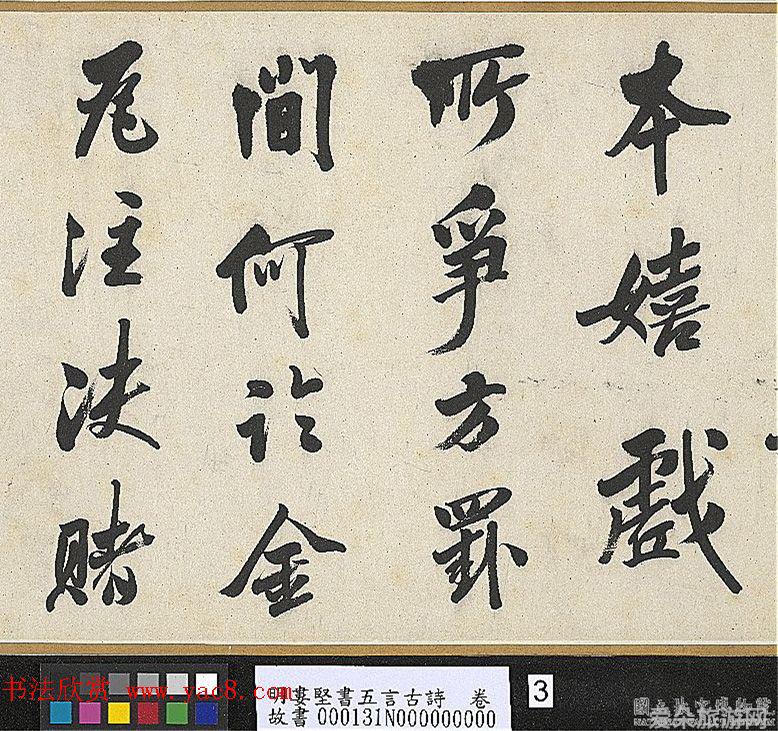 本嬉戲
所爭方罫
間何論金
瓦注決賭
书法欣赏 www.yac8.com
明婁堅書五言古詩 卷
故書000131N000000000
3
旅游网